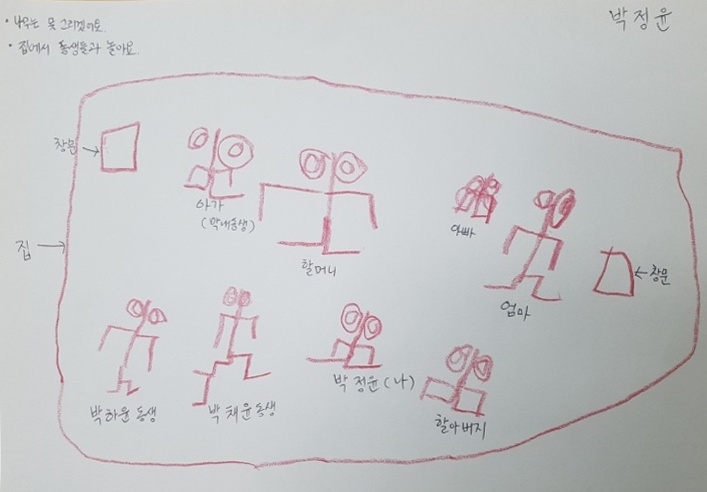 박정윤
• 나무는 못 그리겠어요.
• 집에서 동생들과 놀아요.
창문
아가
(막내동생)
할머니
아빠
엄마
창문
집
박하윤 동생
박채윤 동생
박정윤 (나)
할아버지